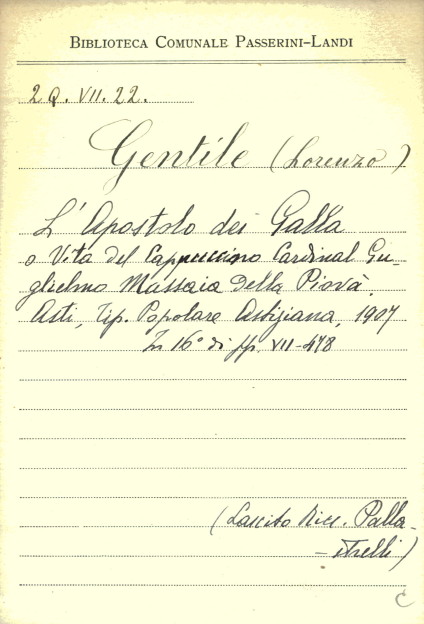 BIBLIOTECA COMUNALE PASSERINI-LANDI
2 Q. VII. 22.
Gentile (Lorenzo)
L'Apostolo dei Galla
o Vita del Cappuccino Cardinal Gu-
glielmo Massaia della Piovà.
Asti, Tip. Popolare Astigiana, 1907
In 16° di pp. VII-478
(Lascito Ricc. Palla-
-strelli)
C